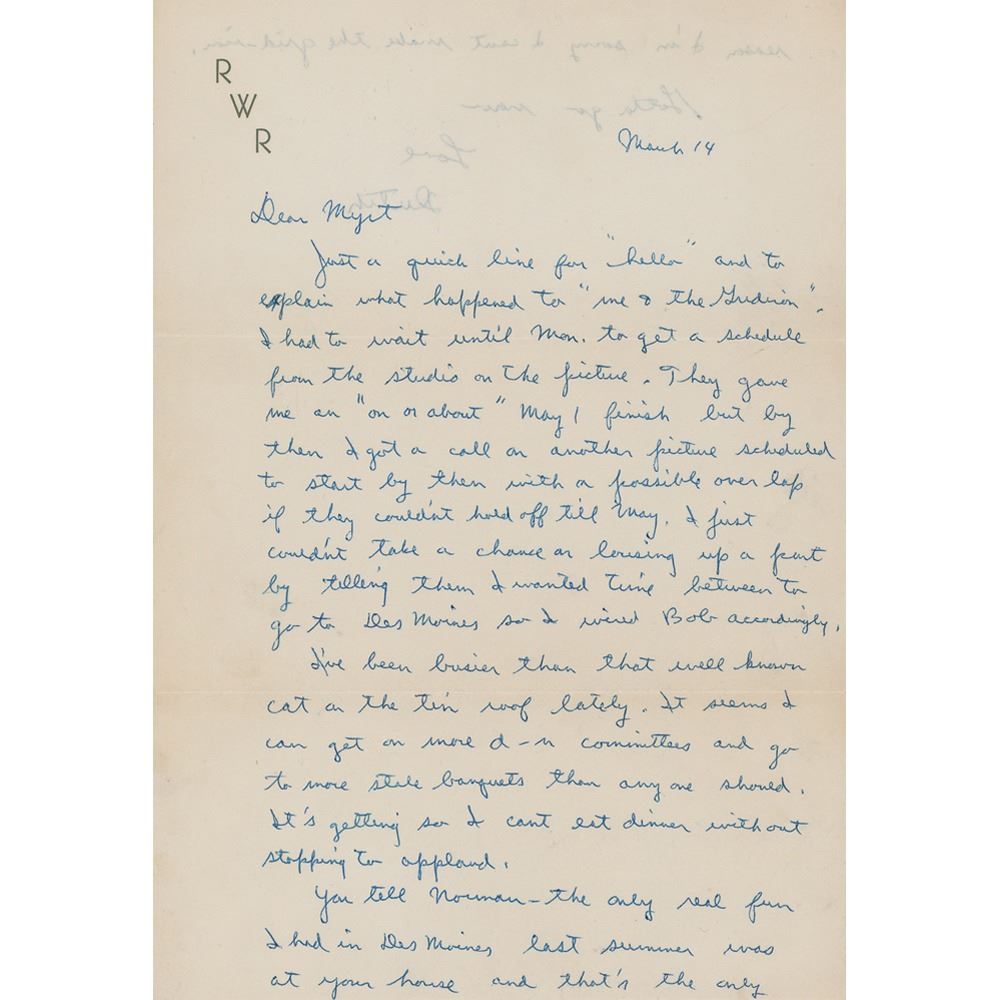 R
W
R
March 14
Dear Myrt
Just a quick line for "hello" and to
explain what happened to "me & the Gridiron".
I had to wait until Mon. to get a schedule
from the studio on the picture. They gave
me an "on or about" May 1 finish but by
then I got a call on another picture scheduled
to start by then with a possible over lap
if they couldn't hold off till May. I just
couldn't take a chance on lousing up a part
by telling them I wanted time between to
go to Des Moines so I wired Bob accordingly.
I've been busier than that well known
cat on the tin roof lately. It seems I
can get on more d-n committees and go
to more stale banquets than any one should.
It's getting so I cant eat dinner without
stopping to applaud.
You tell Norman – the only real fun
I had in Des Moines last summer was
at your house and that's the only
reason I'm sorry I cant make the grid-iron.
Love
Dutch